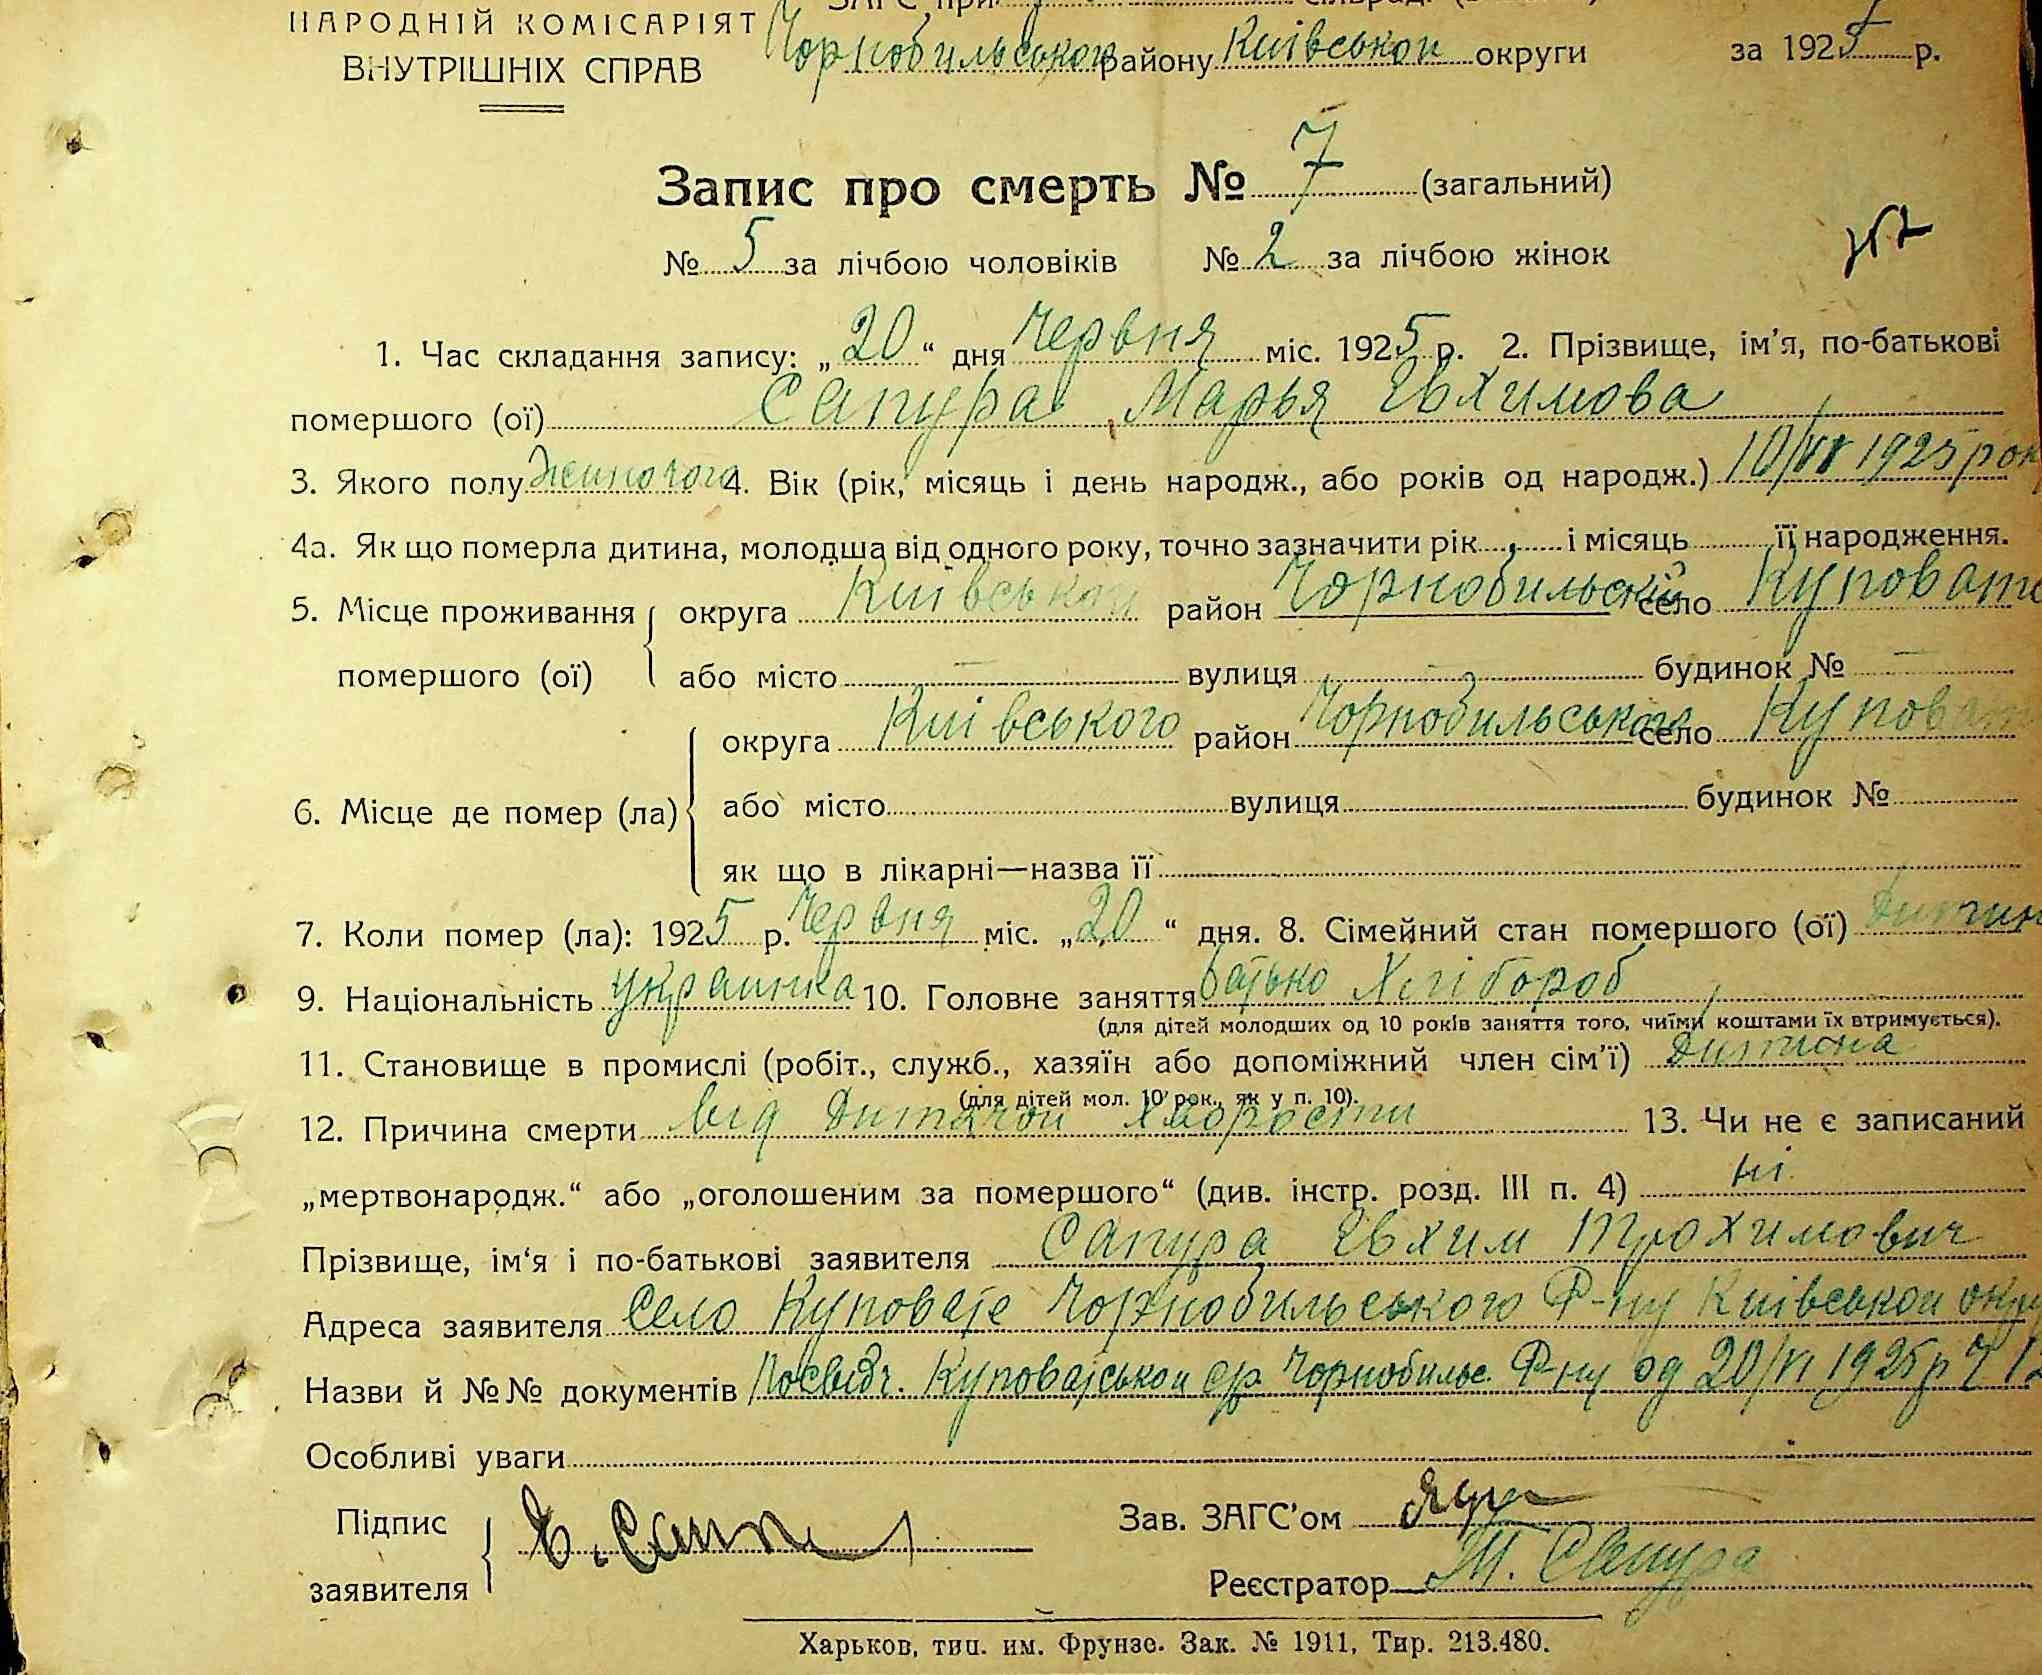 НАРОДНІЙ КОМІСАРІЯТ
ВНУТРІШНІХ СПРАВ
Чорнобильського району Київськои округи за 1925 р.
Запис про смерть № 7 (загальний)
№ 5 за лічбою чоловіків № 2 за лічбою жінок
1. Час складання запису: „20“ дня Червня міс. 1925 р. 2. Прізвище, ім'я, по-батькові
помершого (ої) Сапура Марья Євхимова
3. Якого полу Жиночого 4. Вік (рік, місяць і день народж., або років од народж.) 10/VI 1925 рок
4а. Як що померла дитина, молодша від одного року, точно зазначити рік і місяць її народження.
5. Місце проживання округа Київськои район Чорнобильский село Куповате
помершого (ої) або місто — вулиця — будинок № —
округа Київського район Чорнобильського село Куповат
6. Місце де помер (ла) або місто вулиця будинок №
як що в лікарні—назва її
7. Коли помер (ла): 1925 р. Червня міс. „20“ дня. 8. Сімейний стан помершого (ої) Дитин
9. Національність украинка 10. Головне заняття батько Хлібороб
(для дітей молодших од 10 років заняття того, чиїми коштами їх втримується).
11. Становище в промислі (робіт., служб., хазяїн або допоміжний член сім'ї) Дитина
(для дітей мол. 10 рок., як у п. 10).
12. Причина смерти від Дитячои Хворости 13. Чи не є записаний
„мертвонародж.“ або „оголошеним за помершого“ (див. інстр. розд. III п. 4) ні.
Прізвище, ім'я і по-батькові заявителя Сапура Євхим Трохимович
Адреса заявителя Село Куповате Чорнобильського Р-ну Київськои окру
Назви й №№ документів Посвідч. Куповатськои ср Чорнобильс. Р-ну од 20/VI 1925 р Ч 12
Особливі уваги
Підпис
заявителя
Зав. ЗАГС'ом
Реєстратор Т. Сапура
Харьков, тип. им. Фрунзе. Зак. № 1911, Тир. 213.480.